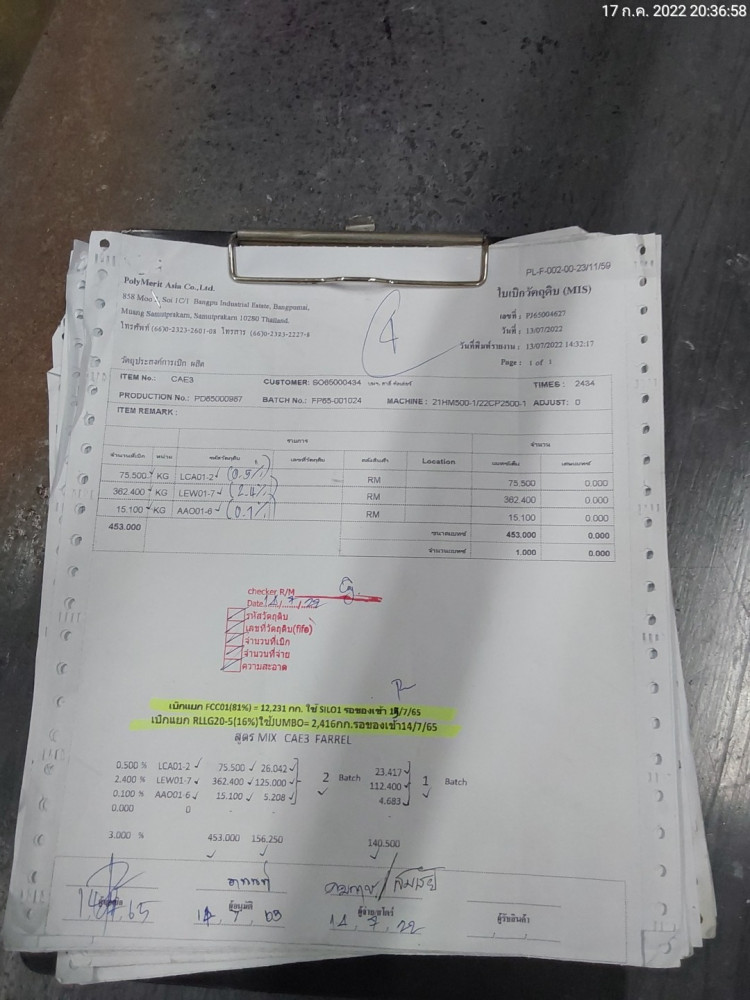 17 ก.ค. 2022 20:36:58
PL-F-002-00-23/11/59
PolyMerit Asia Co.,Ltd.
ใบเบิกวัตถุดิบ (MIS)
858 Moo Soi 1C/1 Bangpu Industrial Estate, Bangpumai,
Muang Samutprakarn, Samutprakarn 10280 Thailand.
เลขที่ : PJ65004627
โทรศัพท์ (66)0-2323-2601-08 โทรสาร (66)0-2323-2227-8
วันที่ : 13/07/2022
4
วันที่พิมพ์รายงาน : 13/07/2022 14:32:17
Page : 1 of 1
วัตถุประสงค์การเบิก ผลิต
ITEM No.: CAE3 CUSTOMER: SO65000434 TIMES : 2434
PRODUCTION No.: PD65000967 BATCH No.: FP65-001024 MACHINE : 21HM500-1/22CP2500-1 ADJUST: 0
ITEM REMARK :
รายการ จำนวน
จำนวนที่เบิก หน่วย รหัสวัตถุดิบ เลขที่วัตถุดิบ คลังสินค้า Location แบทช์เต็ม เศษแบทช์
75.500 ✓ KG LCA01-2 ✓ (0.5%) RM 75.500 0.000
362.400 ✓ KG LEW01-7 ✓ (2.4%) RM 362.400 0.000
15.100 ✓ KG AAO01-6 ✓ (0.1%) RM 15.100 0.000
453.000 ขนาดแบทช์ 453.000 0.000
จำนวนแบทช์ 1.000 0.000
checker R/M
Date 14/7/22
รหัสวัตถุดิบ
เลขที่วัตถุดิบ(fifo)
จำนวนที่เบิก
จำนวนที่จ่าย
ความสะอาด
เบิกแยก FCC01(81%) = 12,231 กก. ใช้ SILO1 รอของเข้า 14/7/65
เบิกแยก RLLG20-5(16%)ใช้JUMBO= 2,416กก.รอของเข้า14/7/65
สูตร MIX CAE3 FARREL
0.500 % LCA01-2 ✓ 75.500 ✓ 26.042 ✓ 23.417 ✓
2.400 % LEW01-7 ✓ 362.400 ✓ 125.000 ✓ 2 Batch 112.400 ✓ 1 Batch
0.100 % AAO01-6 ✓ 15.100 ✓ 5.208 ✓ 4.683 ✓
0.000 0 - - -
3.000 % 453.000 156.250 140.500
ผู้อนุมัติ ผู้จ่าย/สโตร์ ผู้รับสินค้า
14, 7, 65 14, 7, 22